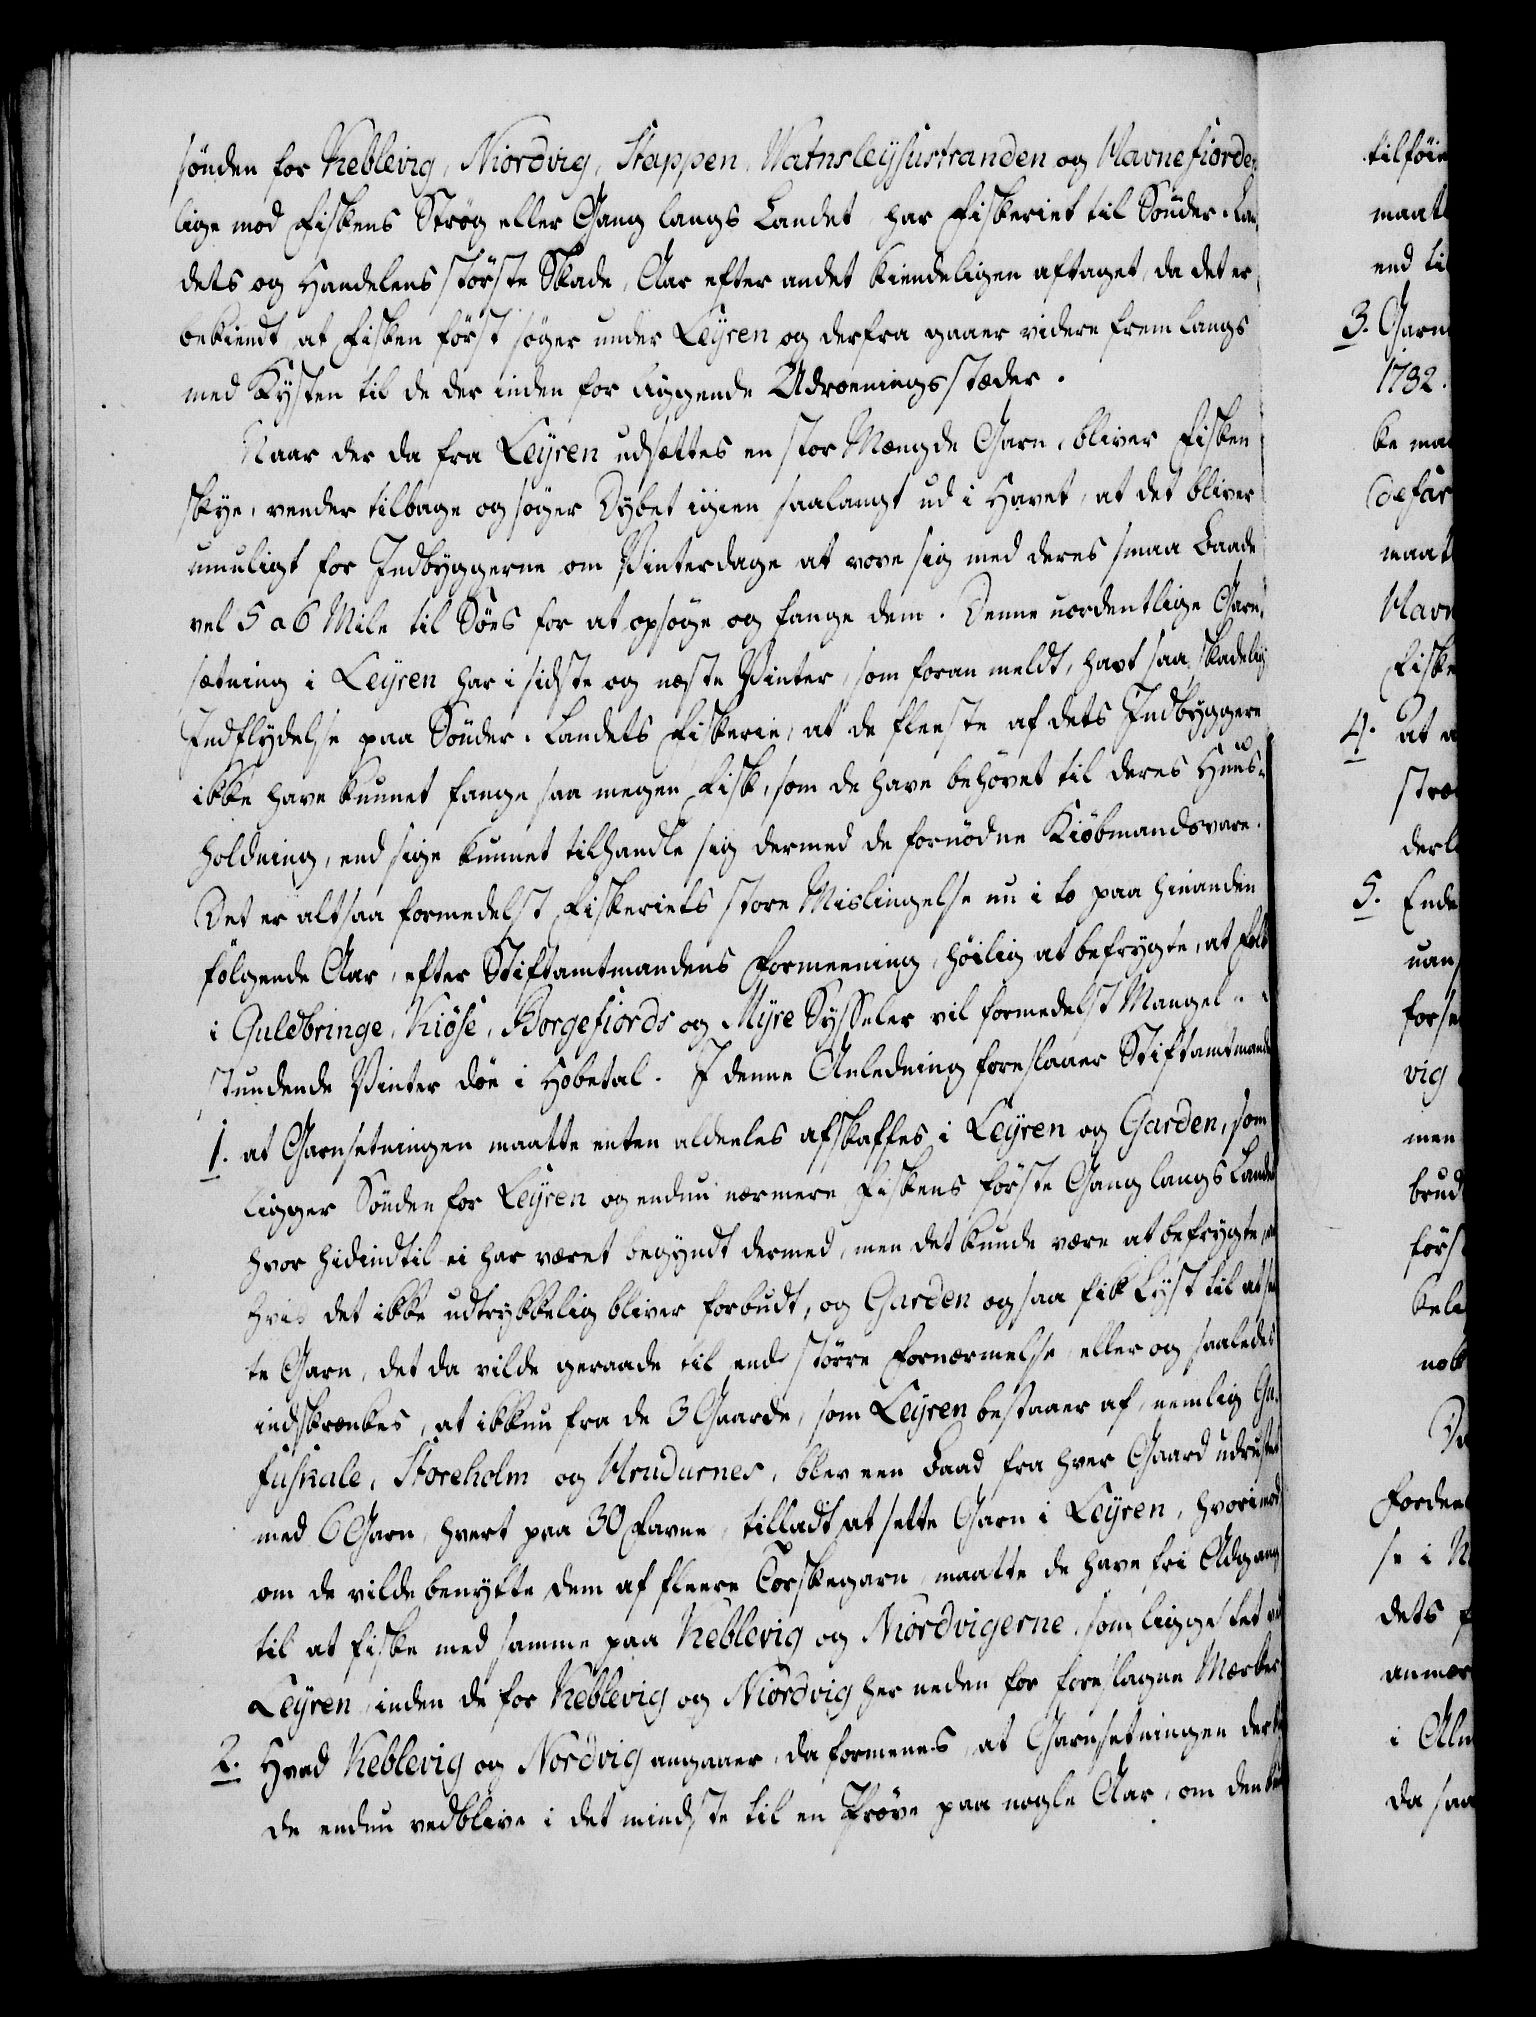 sönden for Keblevig, Niordvig, Stappen, Watnsleysustranden og Havnefiorden
lige mod Fiskens Strög eller Gang langs Landet, har Fiskeriet til Sönder-Lan-
dets og Handelens störste Skade, Aar efter andet kiendeligen aftaget, da det er
bekiendt at Fisken först söger under Leyren og derfra gaaer videre frem langs
med Kysten til de der inden for liggende Udroeningsstæder.
Naar der da fra Leyren udsættes en stor Mængde Garn, bliver Fisken
skye, vender tilbage og söger Dybet igien saalangt ud i Havet, at det bliver
umuligt for Indbyggerne om Vinterdage at vove sig med deres smaa Baade
vel 5 a 6 Mile til Söes for at opsöge og fange dem. Denne uordentlige Garn-
sætning i Leyren har i sidste og næste Vinter, som foran meldt, havt saa skadelig
Indflydelse paa Sönder-Landets Fiskerie, at de fleeste af dets Indbyggere
ikke have kunnet fange saa megen Fisk, som de have behövet til deres Huus-
holdning, end sige kunnet tilhandle sig dermed de fornödne Kiöbmandsvare.
Det er altsaa formedelst Fiskeriets store Mislingelse nu i to paa hinanden
fölgende Aar, efter Stiftamtmandens Formeening, höilig at befrygte, at Folk
i Guldbringe, Kiöse, Borgefiords og Myre Sysseler vil formedelst Mangel
stundende Vinter döe i Hobetal. I denne Anledning foreslaaer Stiftamtmanden
1. at Garnsetningen maatte enten aldeeles afskaffes i Leyren og Garden, som
ligger Sönden for Leyren og endnu nærmere Fiskens förste Gang langs Landet
hvor hidindtil ei har været begyndt dermed, men det kunde være at befrygte, at
hvis det ikke udtrykkelig bliver forbudt, og Garden ogsaa fik Lyst til at set-
te Garn, det da vilde geraade til end större Fornærmelse, eller og saaledes
indskrænkes, at ikkun fra de 3 Gaarde, som Leyren bestaaer af, nemlig Gu-
fuskale, Storeholm og Hrudurnes, blev een Baad fra hver Gaard udrustet
med 6 Garn, hvert paa 30 Favne, tilladt at sette Garn i Leyren, hvorimod
om de vilde benytte dem af fleere Torskegarn, maatte de have fri Adgang
til at fiske med samme paa Keblevig og Niordvigerne, som ligge tet ved
Leyren, inden de for Keblevig og Niordvig her neden for foreslagne Mærker
2. Hvad Keblevig og Nordvig angaaer, da formenes, at Garnsetningen der kun-
de endnu vedblive i det mindste til en Pröve paa nogle Aar, om den kun
tilföie
maat
end til
3. Garn
1782.
ke maa
maat
Havn
Fiske
4. at a
stræ
derl
5. Ende
uan
forse
vig
men
brud
först
kele
nok
forden
se i K
dets F
anmær
i Alm
da saa